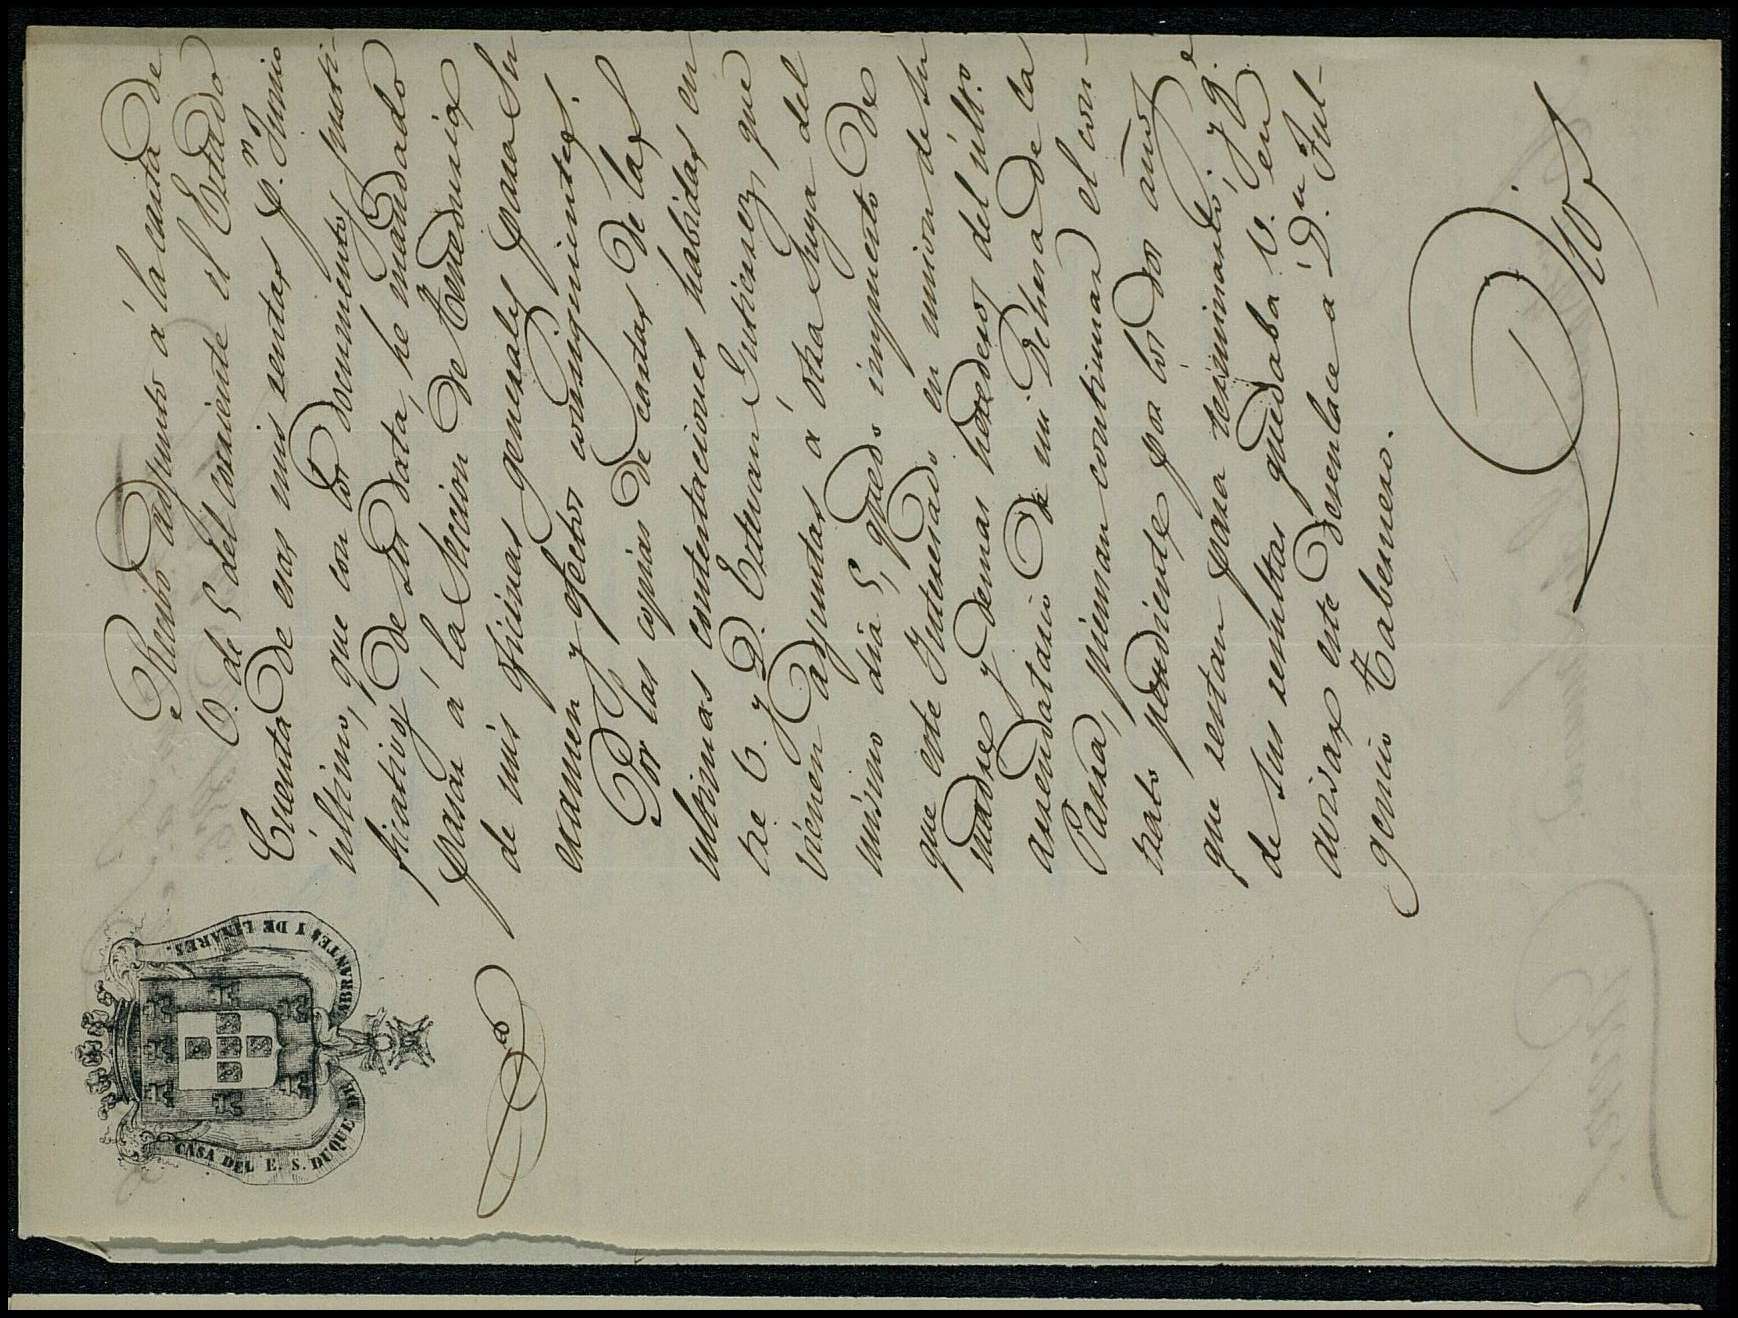 CASA DEL E. S. DUQUE DE ABRANTES Y DE LINARES.
Recibo adjunto á la carta de
V. de 5 del corriente el Estado
Cuenta de esas mis rentas p.r Junio
último, que con los documentos justi-
ficativos de su data, he mandado
pasar á la Seccion de Teneduria
de mis oficinas generales para su
examen y efectos consiguientes.
Por las copias de cartas de las
ultimas contestaciones habidas en
tre V. y D. Estevan Gutierrez, que
vienen adjuntas á otra suya del
mismo dia 5, quedo impuesto de
que este Interesado en union de su
madre y demas herederos del últ.o
arrendatario de mi Dehesa de la
Parra, piensan continuar el con-
trato pendiente por los dos años
que restan para terminarlo; y q.e
de sus resultas quedaba V. en
avisar este desenlace á D.n Ful-
gencio Tabernero.